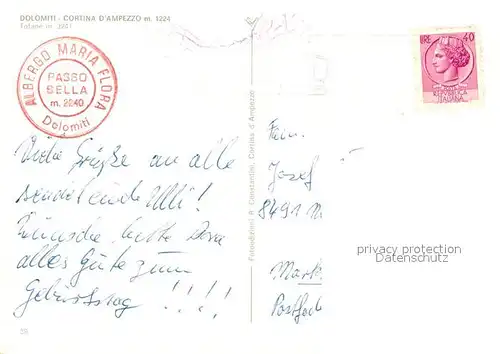 DOLOMITI - CORTINA D'AMPEZZO m. 1224
Tofane m. 3241
ALBERGO MARIA FLORA
PASSO
SELLA
m. 2240
Dolomiti
LIRE 40
REPUBBLICA
ITALIANA
Viele Grüße an alle
sendet euch Ulli!
Wünsche
alles Gute zum
Geburtstag !!!!
Fotoedizioni B. Constantini, Cortina d'Ampezzo
Fam.
Josef
8491
Markt
Postfach
privacy protection
by VEIKKOS